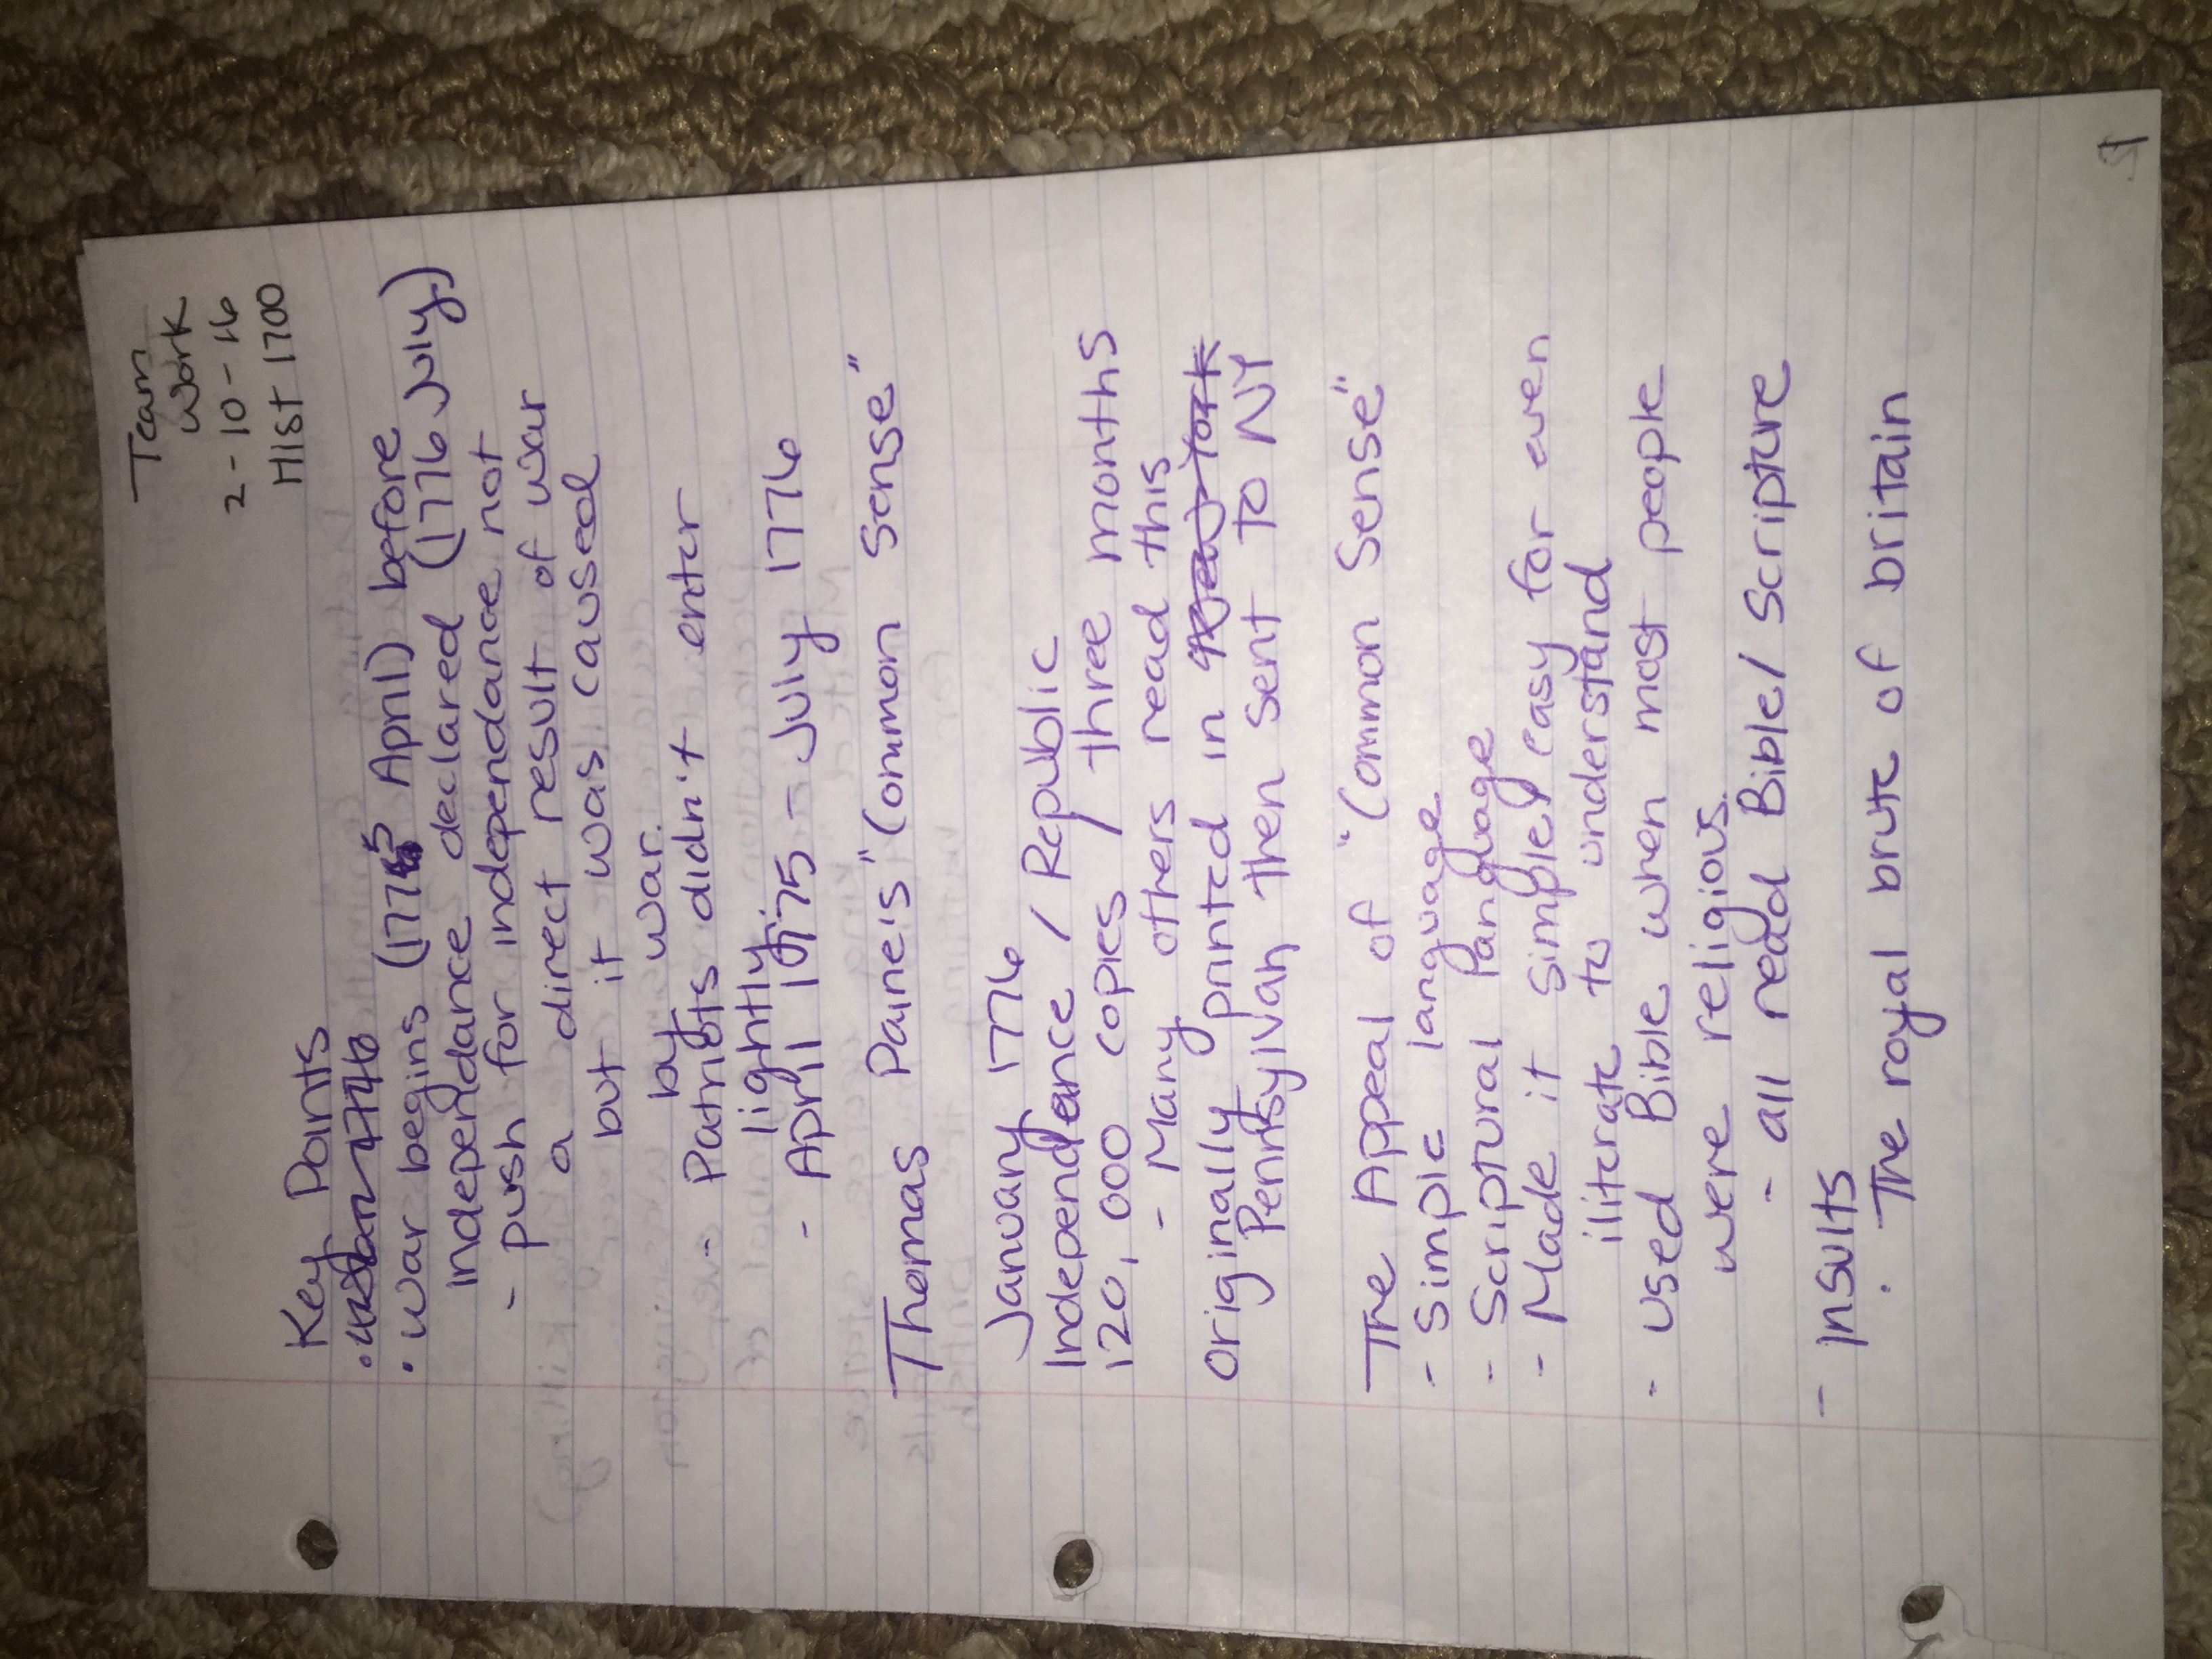 Team
Work
2-10-16
HIST 1700
Key Points
• war begins (1775 April) before
independance declared (1776 July)
- push for independance not
a direct result of war
but it was caused
by war.
- Patriots didn't enter
lightly.
- April 1775 - July 1776
Thomas Paine's "Common Sense"
January 1776
Independence / Republic
120,000 copies / three months
- Many others read this
originally printed in New York
Pennsylvan then sent to NY
The Appeal of "Common Sense"
- Simple language
- Scriptural language
- Made it simple/easy for even
iliterate to understand
- used Bible when most people
were religious.
- all read Bible/Scripture
- Insults
. The royal brute of britain